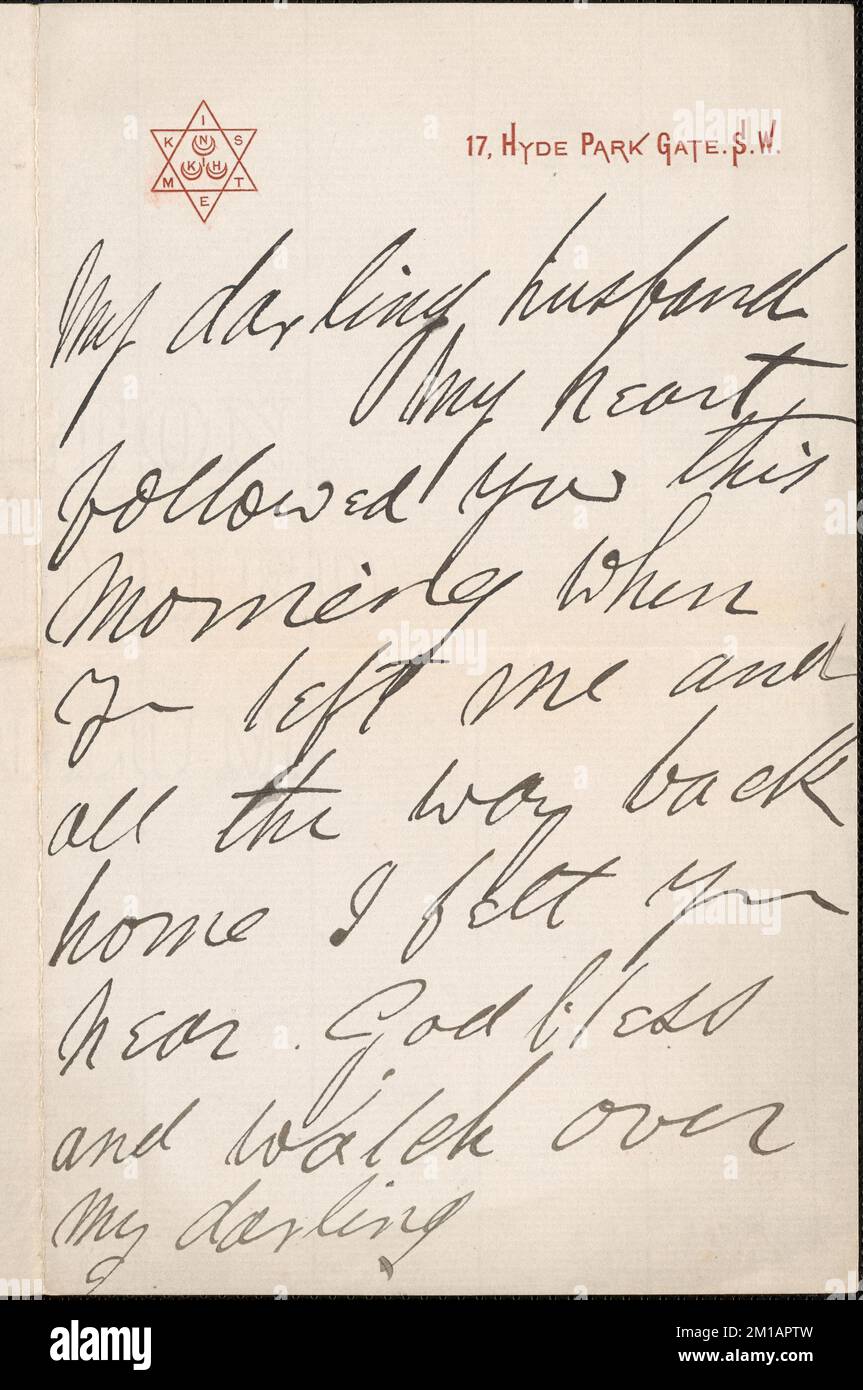 I
K N S
K I H
M T
E
17, HYDE PARK GATE. S.W.
My darling husband
My heart
followed you this
morning when
you left me and
all the way back
home I felt you
near. God bless
and watch over
my darling
alamy
Image ID: 2M1APTW
www.alamy.com